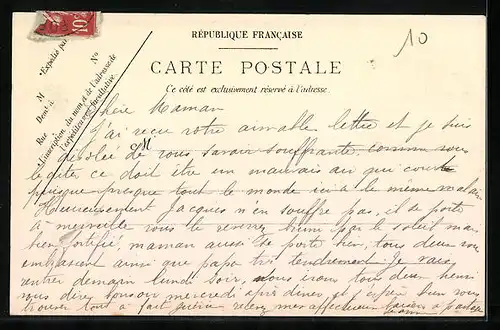 RÉPUBLIQUE FRANÇAISE
10
CARTE POSTALE
Ce côté est exclusivement réservé à l'adresse
"Expédié par
M
Demt à
Rue
No
"L'inscription du nom et de l'adresse de
l'expéditeur est facultative.
Chère Maman
J'ai reçu votre aimable lettre et je suis
désolée de vous savoir souffrante, comme vous
le dites ce doit être un mauvais air qui court
puisque presque tout le monde ici a le même mal
Heureusement Jacques n'en souffre pas, il se porte
à merveille vous le verrez bruni par le soleil mais
bien fortifié, maman aussi se porte bien, tous deux vous
embrassent ainsi que papa très tendrement. Je vais
rentrer demain lundi soir, nous irons tous deux henri
vous dire bonsoir mercredi après dîner et espère bien vous
trouver tout à fait guérie recevez mon affectueux baisers à partager